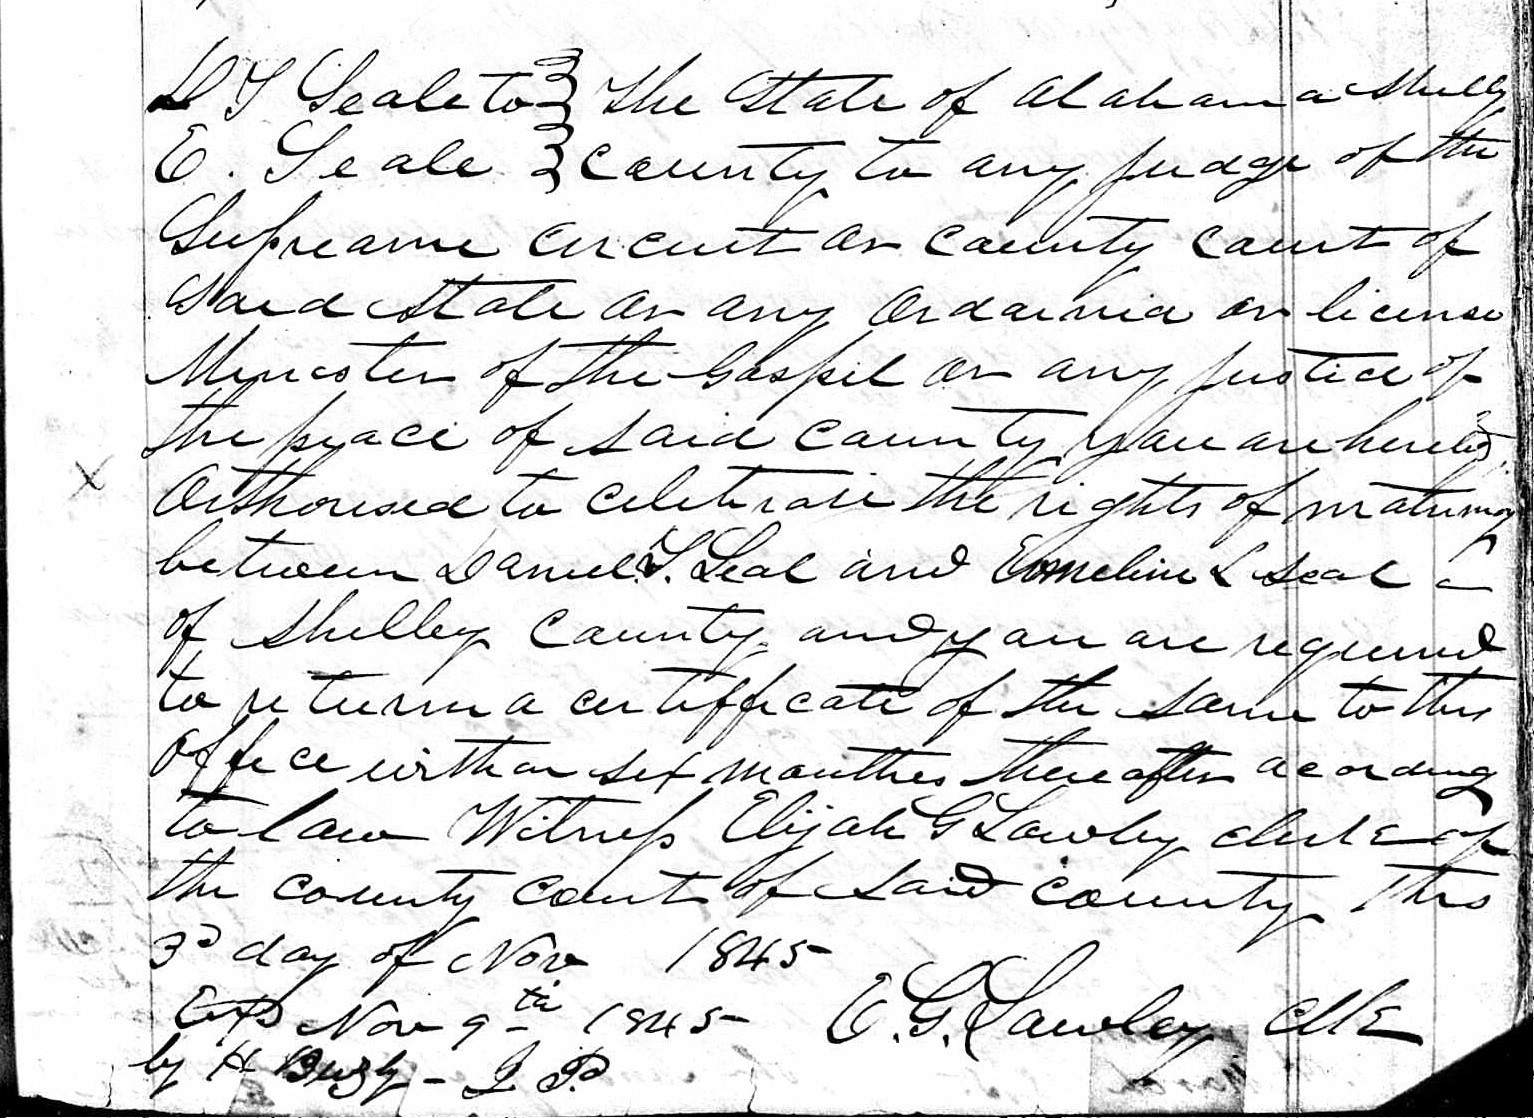 D T Seale to The State of Alabama Shelby
E. Seale County to any judge of the
Supreame circuit or county court of
Said State or any Ordained or license
Minister of the Gospel or any justice of
the peace of said county you are hereby
Orthorised to celebrate the rights of matrimony
between Daniel T. Seal and Emeline L Seal
of Shelbey County and you are required
to return a certifficate of the same to this
office within six monthes thereafter acording
to law Witness Elijah G Lawley clerk of
the county court of said county This
3d day of Nov 1845
Nov 9th 1845 E. G. Lawley Clk
by H Busby - J. P.